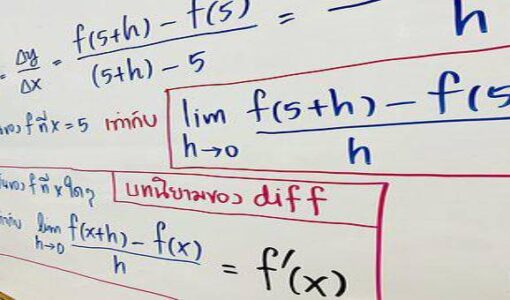 = Δy/Δx = f(5+h) - f(5) / (5+h) - 5 = h
f ที่ x = 5 เท่ากับ lim h→0 f(5+h) - f(5 / h
f ที่ x ใดๆ บทนิยามของ diff
lim h→0 f(x+h) - f(x) / h = f'(x)